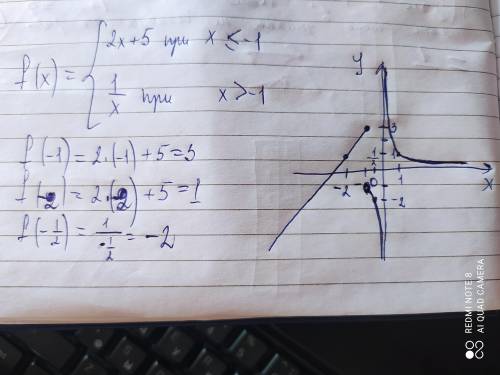 f(x) = { 2x+5 при x ≤ -1
1/x при x > -1
f(-1) = 2·(-1)+5=3
f(-2) = 2·(-2)+5=1
f(-1/2) = 1/(-1/2) = -2
y
3
1/2 1
-2 0 1 x
-2
REDMI NOTE 8
AI QUAD CAMERA